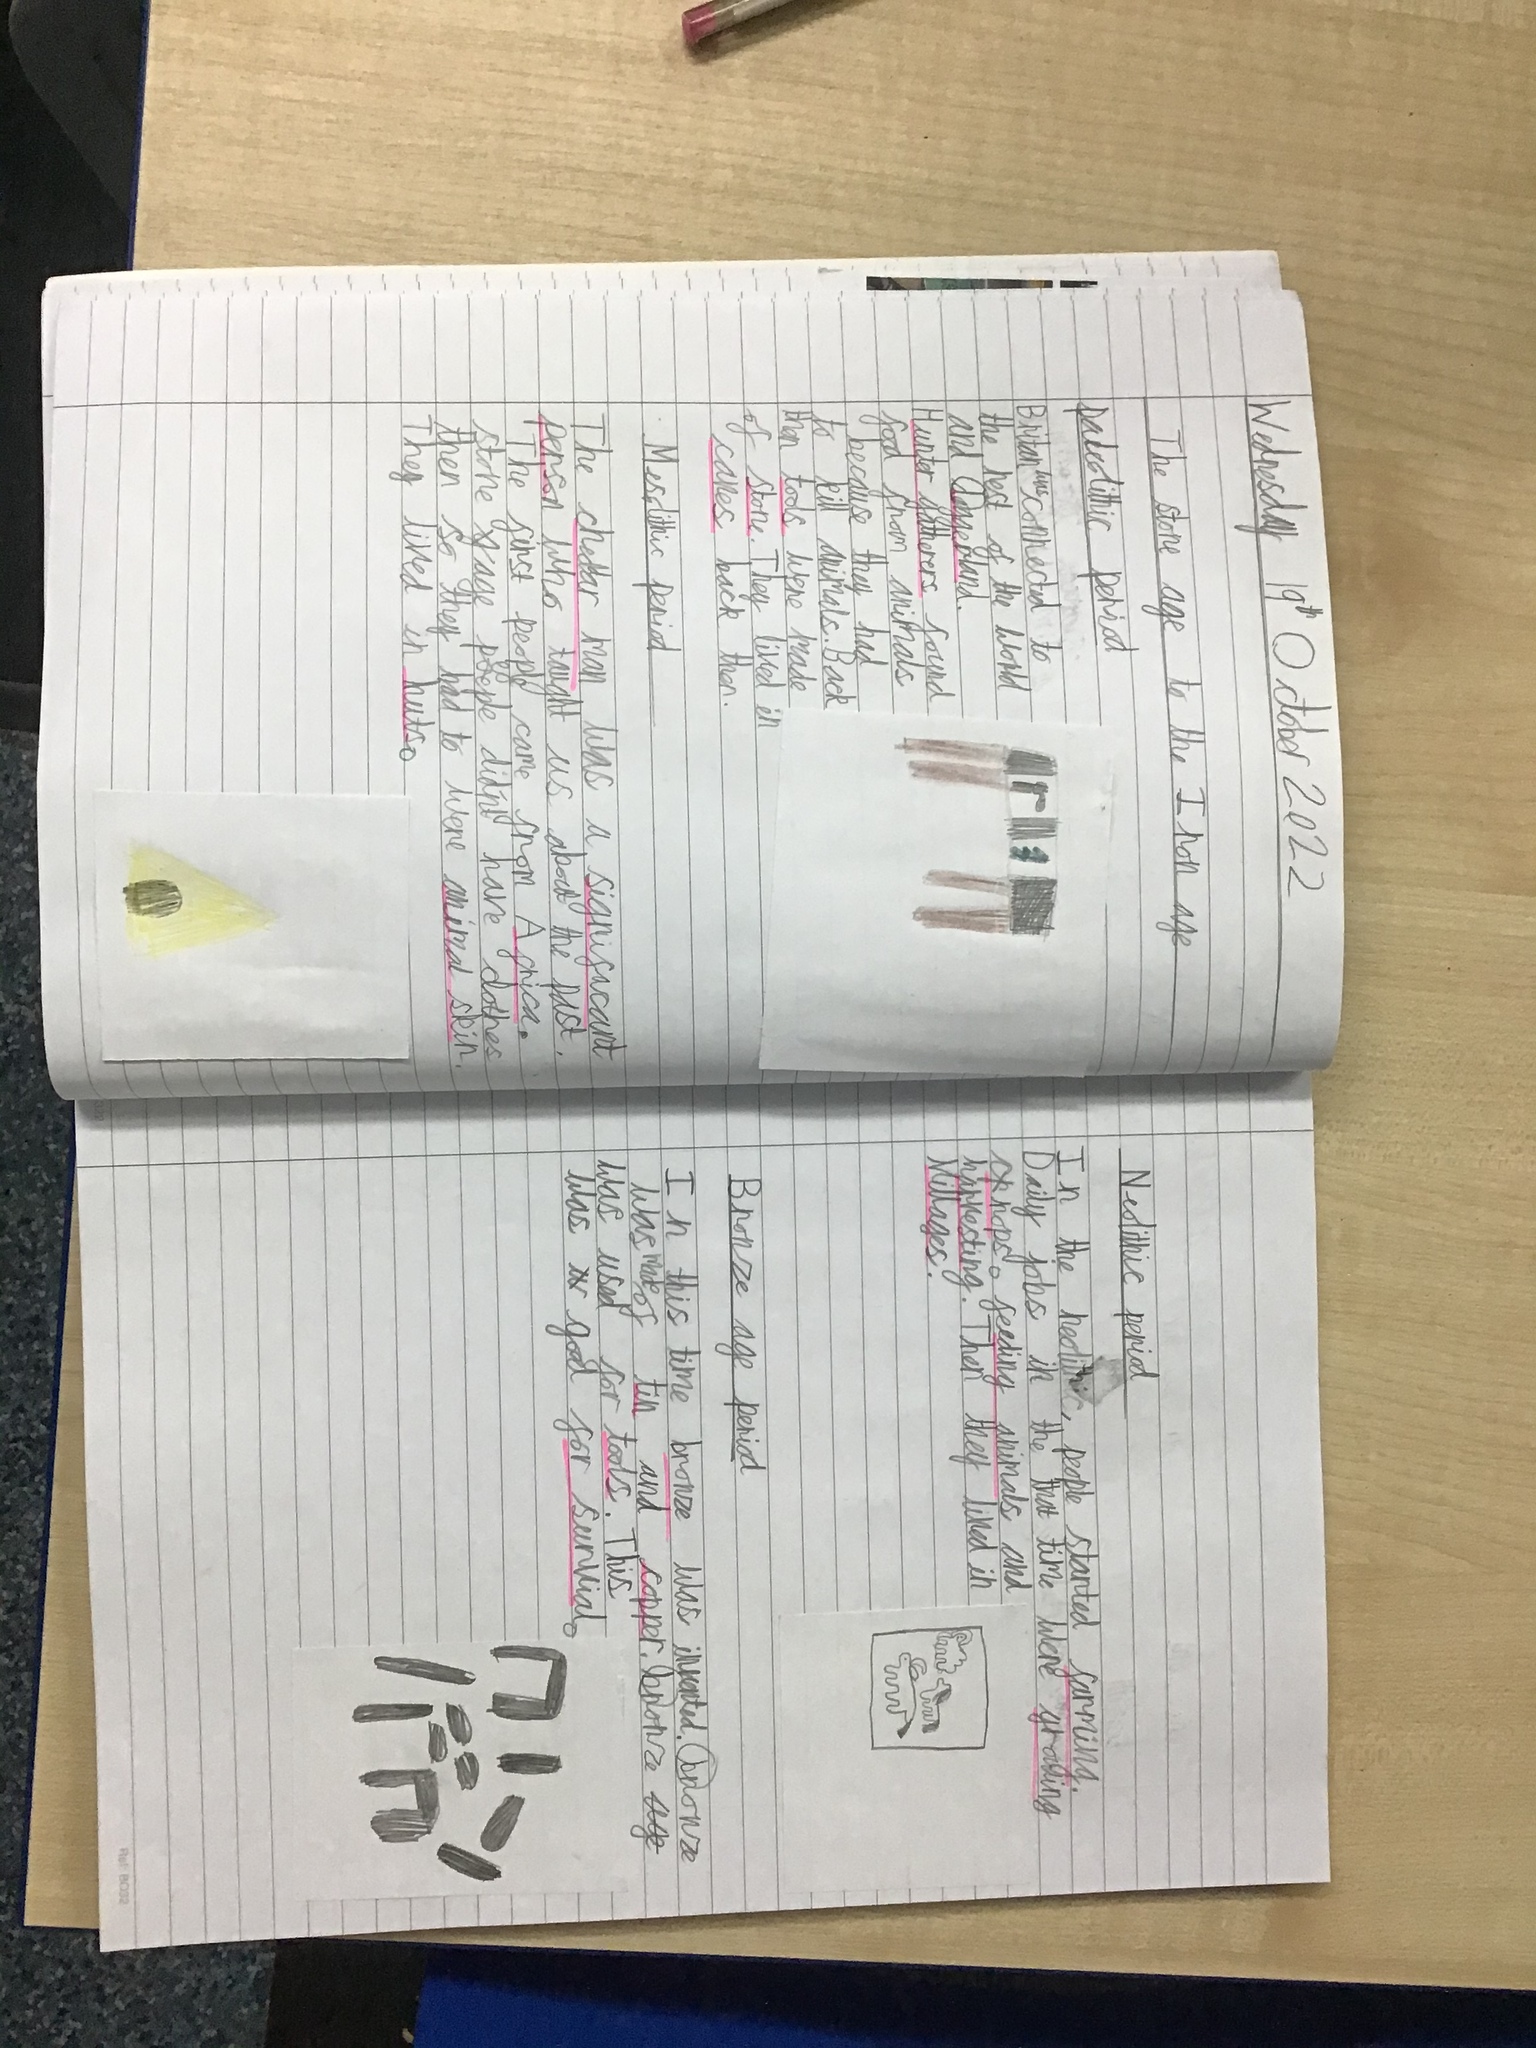 Wednesday 19th October 2022
The stone age to the Iron age
paleolithic period
Britan was connected to
the rest of the world
and Doggerland.
Hunter gatherers found
food from animals
because they had
to kill animals. Back
then tools were made
of stone. They lived in
caves back then.
Mesolithic period
The cheddar man was a significant
person who taught us about the past.
The first people came from Africa.
stone age people didn't have clothes
then so they had to were animal skin.
They lived in huts.
Neolithic period
In the neolithic, people started farming.
Daily jobs in the that time were growing
crops, feeding animals and
harvesting. Then they lived in
Villages.
Bronze age period
In this time bronze was invented. Bronze
was made of tin and copper. bronze age
was used for tools. This
was good for survial.
Ref: BC32